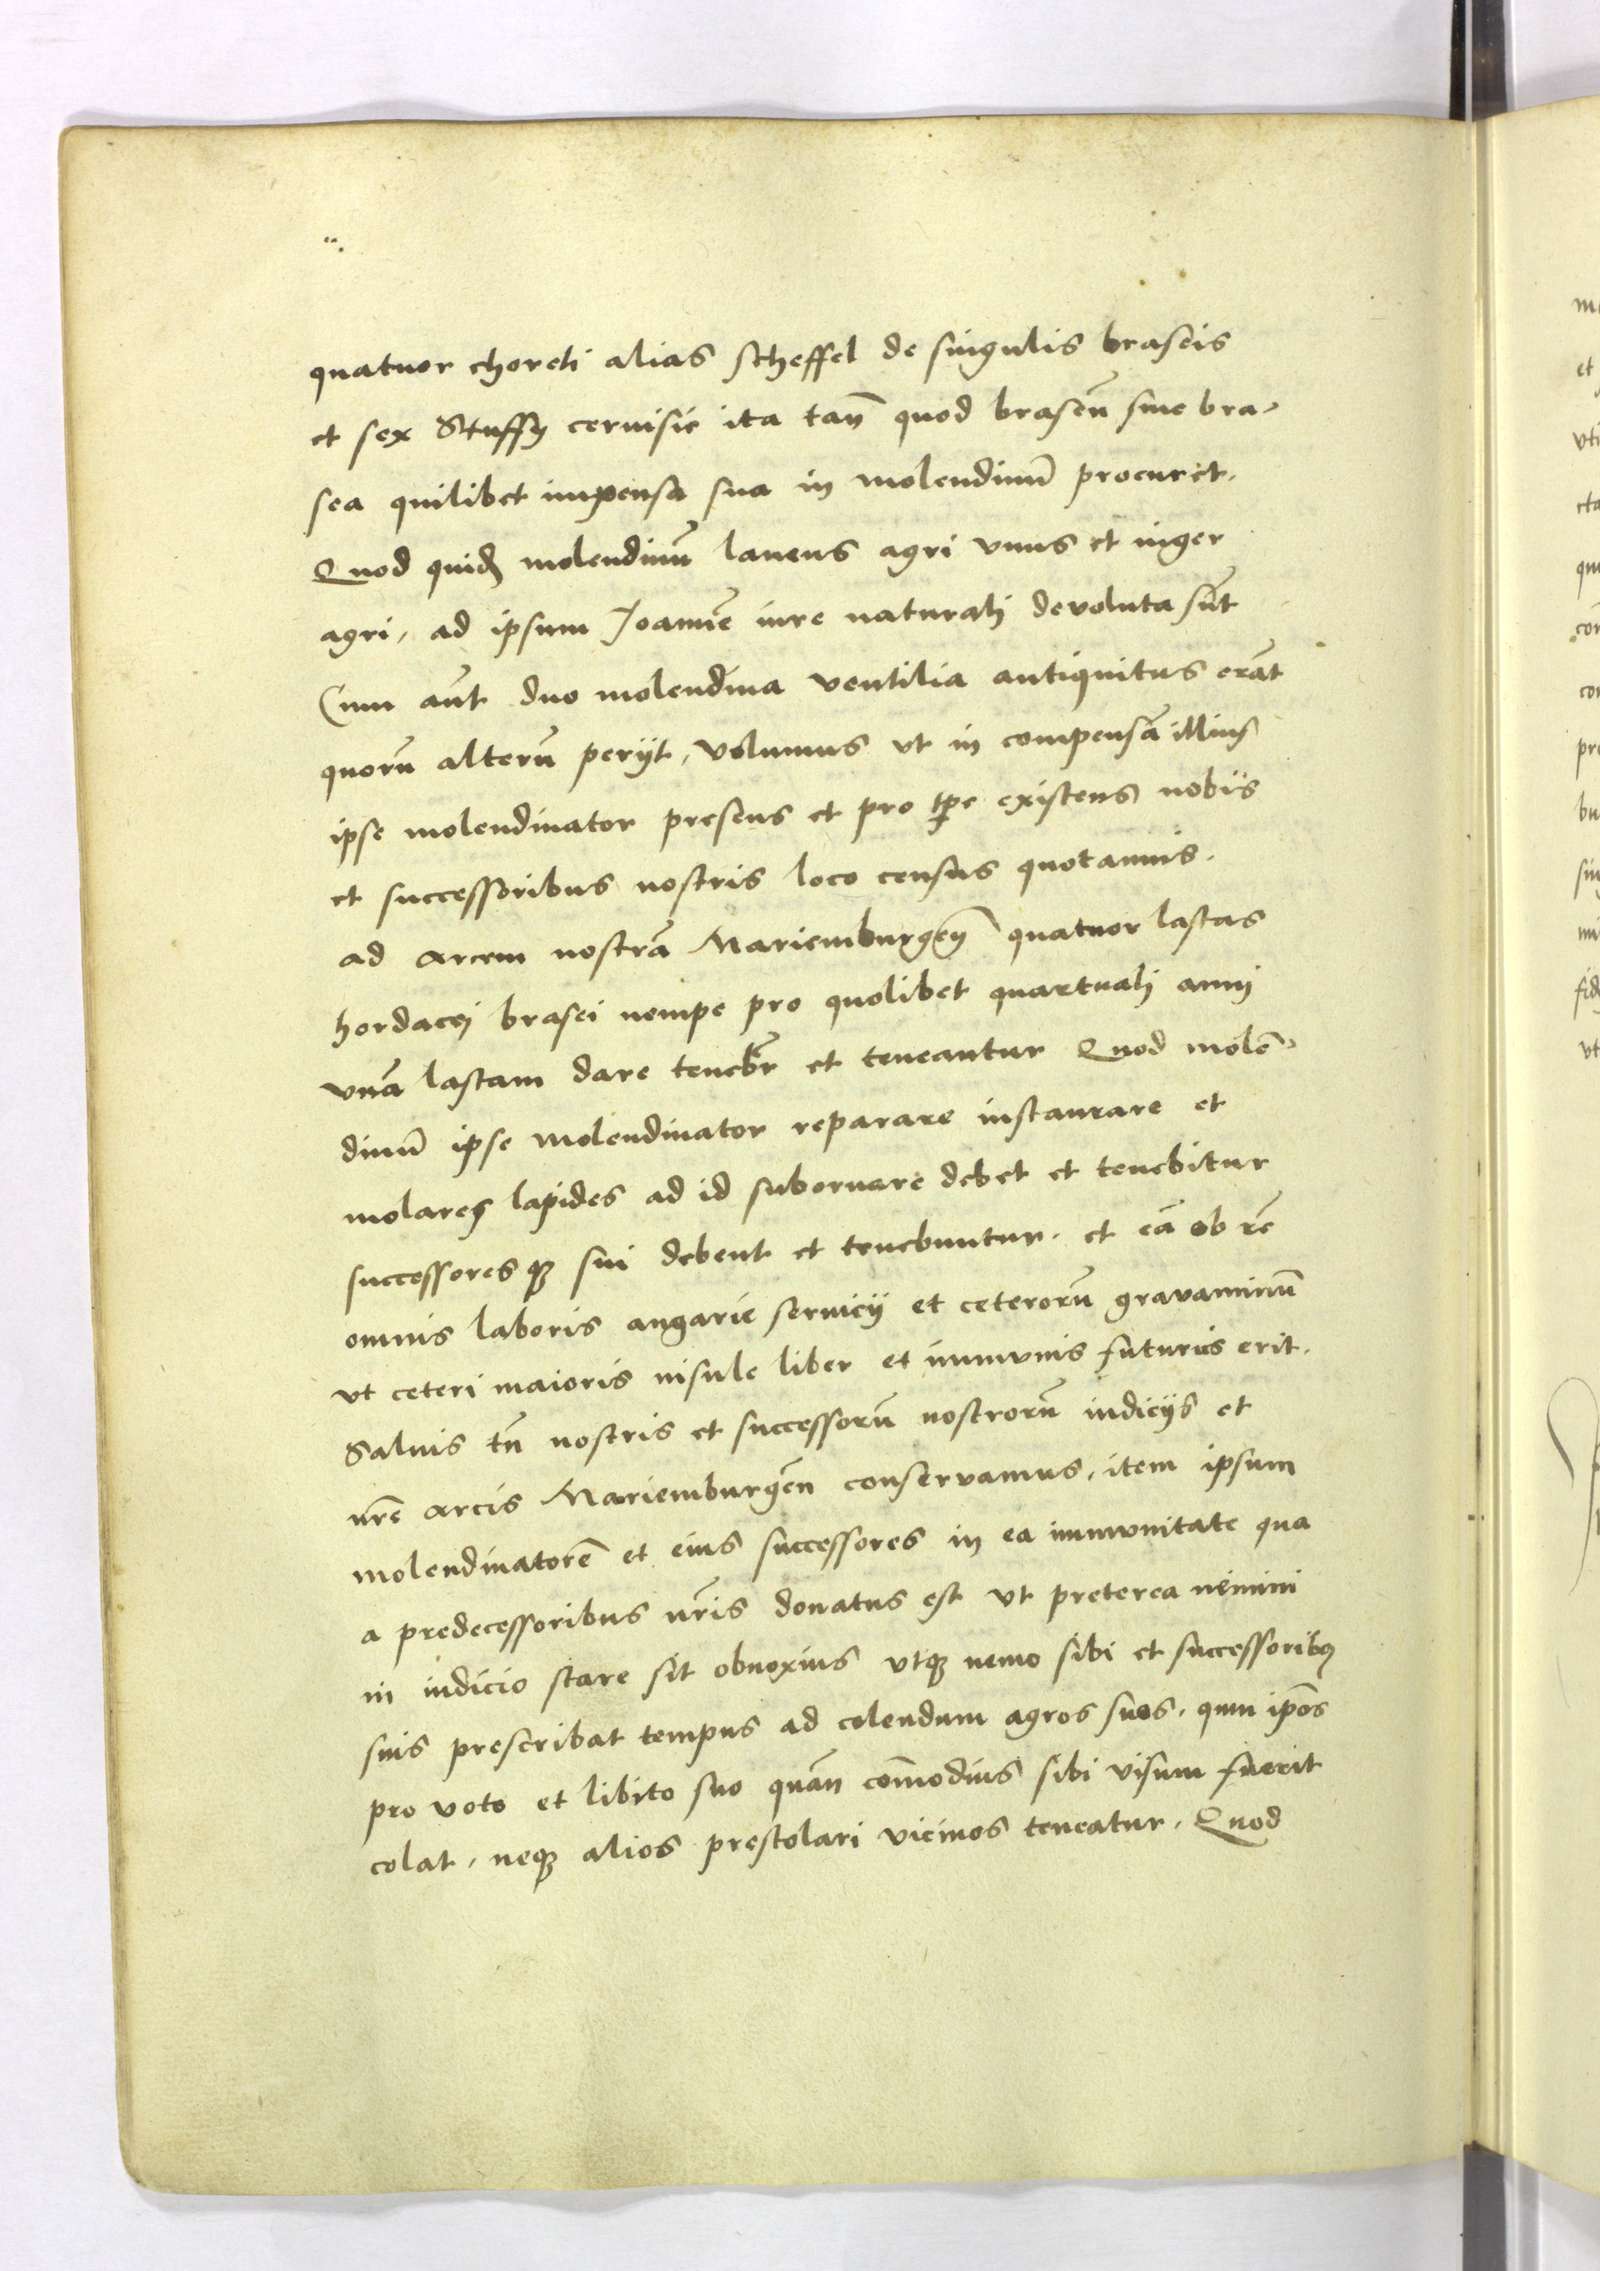 quatuor choreti alias scheffel de singulis braseis
et sex Stuffy ceruisie ita tañ quod braseū siue bra-
sea quilibet impensa sua in molendinū procuret.
Quod quid̄ molendinū laneus agri vnus et iuger
agri, ad ipsum Joannē iure naturali devoluta sūt
Cum aūt duo molendina ventilia antiquitus erāt
quorū alterū perijt, volumus vt in compensā illius
ipse molendinator presens et pro tp̄e existens nobis
et successoribus nostris loco census quotannis.
ad arcem nostrā Mariemburgeñ quatuor lastas
hordacei brasei nempe pro quolibet quartuali anni
vnā lastam dare teneb̄r et teneantur Quod molē-
dinū ipse molendinator reparare instaurare et
molares lapides ad id subornare debet et tenebitur
successoresq̨ sui debent et tenebuntur. et eā ob rē
omnis laboris angarie seruicij et ceterorū gravaminū
vt ceteri maioris insule liber et immvnis futurus erit.
Saluis tñ nostris et successorū nostrorū iudicijs et
nr̄e arcis Mariemburgeñ conservamus, item ipsum
molendinatorē et eius successores in ea immvnitate qua
a predecessoribus nr̄is donatus est vt preterea nemini
in iudicio stare sit obnoxius vtq̨ nemo sibi et successoribꝫ
suis prescribat tempus ad colendum agros suos, quin ip̄os
pro voto et libito suo quañ com̄odius sibi visum fuerit
colat, neq̨ alios prestolari vicinos teneatur, Quod